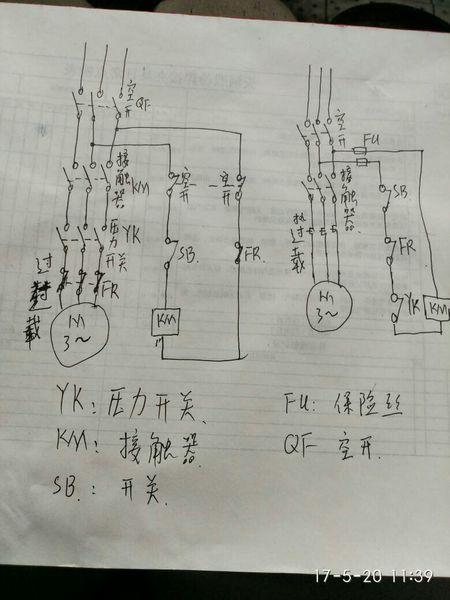 空开
QF
接触器
KM
压力开关
YK
过载
FR
M
3~
空开
空开
SB.
FR.
KM
空开
FU
接触器
过载
SB
FR
YK
KM
M
3~
YK: 压力开关.
KM: 接触器.
SB.: 开关.
FU: 保险丝
QF 空开.
17-5-20 11:39